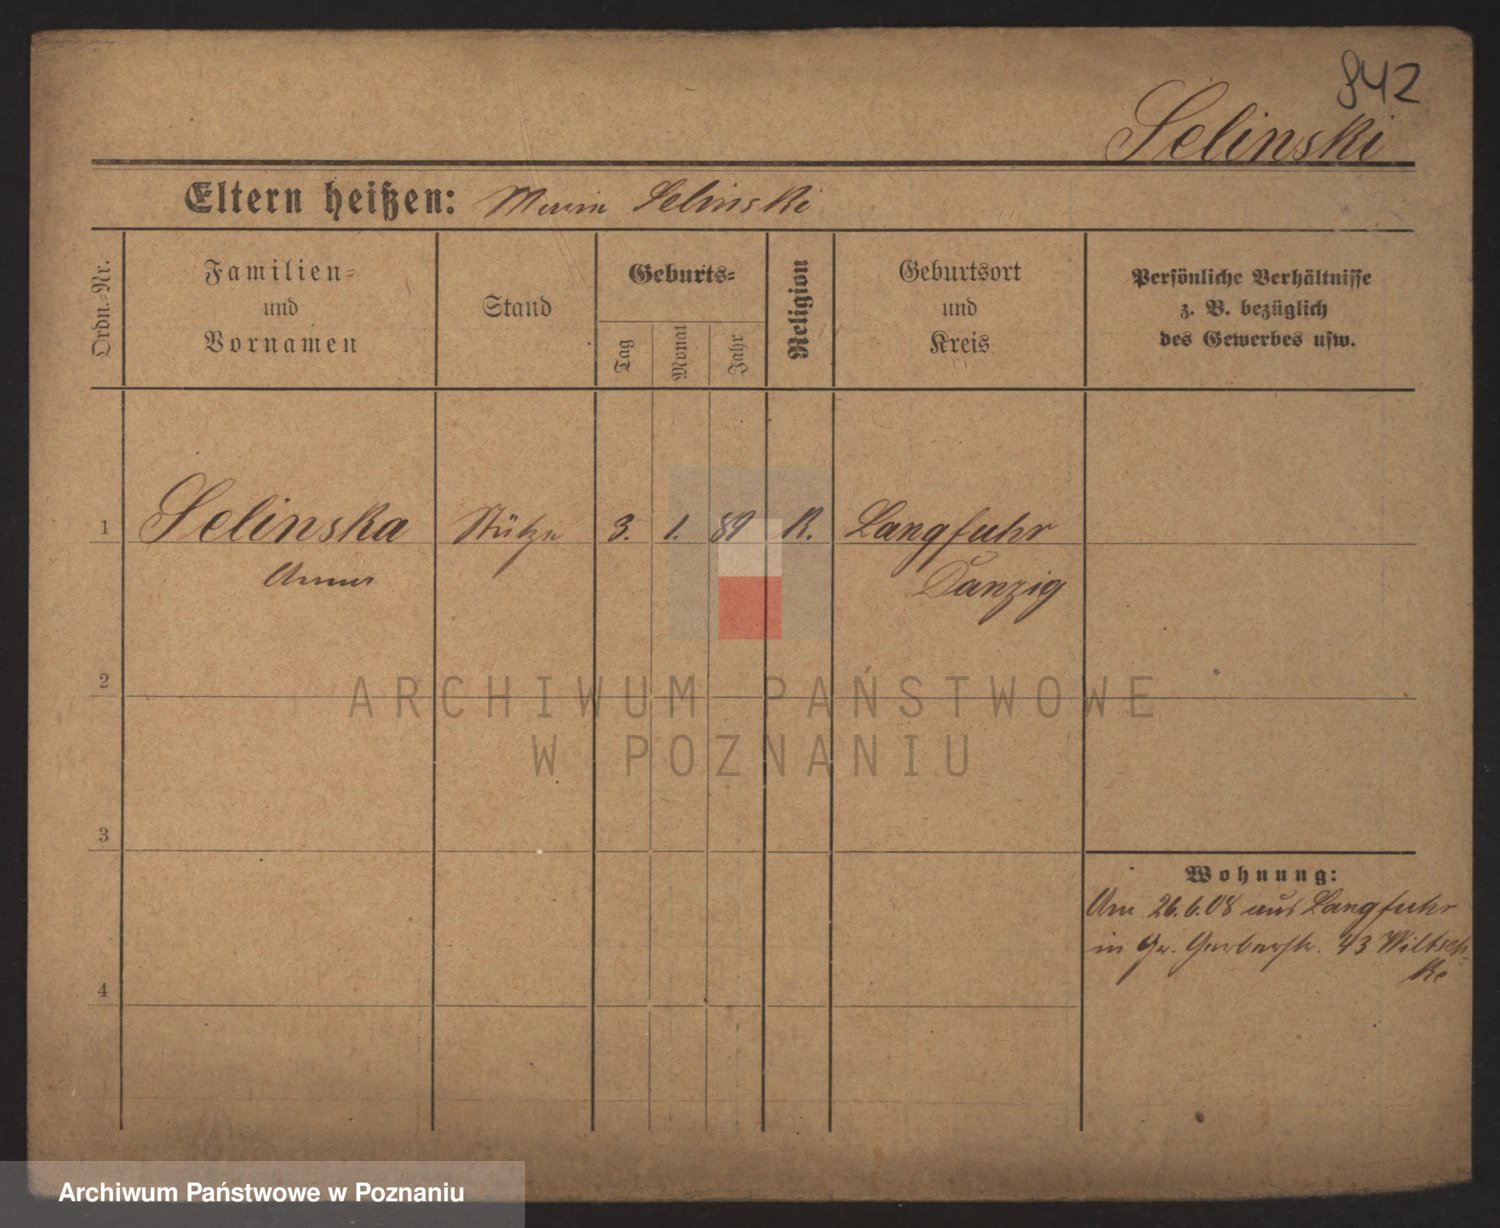 842
Selinski
Eltern heißen: Maria Selinski
Ordn.-Nr.
Familien-
und
Vornamen
Stand
Geburts-
Tag
Monat
Jahr
Religion
Geburtsort
und
Kreis
Persönliche Verhältnisse
z. B. bezüglich
des Gewerbes usw.
1 Selinska Stütze 3. 1. 89 K. Langfuhr
Anna Danzig
2
3
4
Wohnung:
Am 26.6.08 aus Langfuhr
in Gr. Gerberstr. 43 Wiltsch-
ke
ARCHIWUM PAŃSTWOWE
W POZNANIU
Archiwum Państwowe w Poznaniu